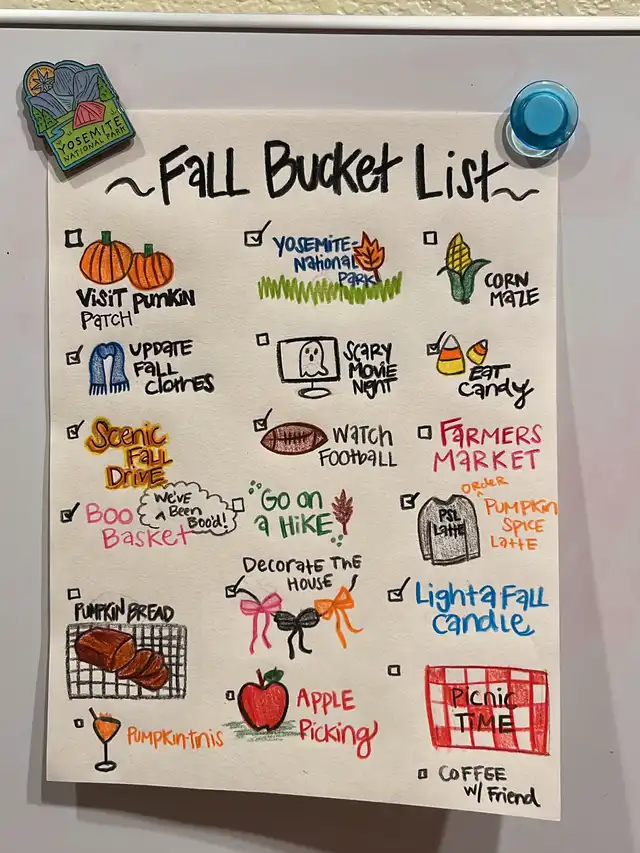 YOSEMITE
NATIONAL PARK
~Fall Bucket List~
VISIT PUMKIN
PATCH
YOSEMITE
National
Park
CORN
MAZE
UPDATE
FALL
Clothes
SCARY
MOVIE
Night
EAT
Candy
Scenic
FALL
DRIVE
WATCH
FOOTBALL
FARMERS
MARKET
BOO
Basket
We've
Been
Boo'd!
Go on
a Hike
PSL
Latte
ORDER
PUMPKIN
SPICE
Latte
PUMPKIN BREAD
Decorate The
HOUSE
Light a Fall
candle
APPLE
Picking
Picnic
TIME
PUMPKIN-tinis
COFFEE
w/ Friend